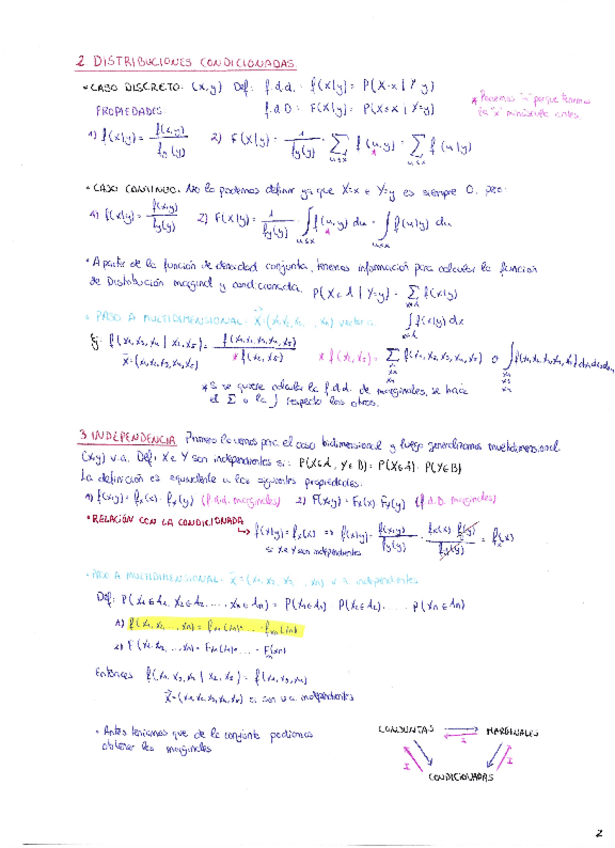 2 DISTRIBUCIONES CONDICIONADAS
• CASO DISCRETO: (x,y) Def: f.d.d.: f(x|y) = P(X=x | Y=y)
* Ponemos "=" porque tenemos la "x" minúscula antes.
PROPIEDADES f.d.D: F(x|y) = P(X≤x | Y=y)
1) f(x|y) = f(x,y) / fy(y) 2) F(x|y) = 1/fy(y) · Σ u≤x f(u,y) = Σ u≤x f(u|y)
• CASO CONTINUO: No lo podemos definir ya que X=x e Y=y es siempre 0, pero:
1) f(x|y) = f(x,y) / fy(y) 2) F(x|y) = 1/fy(y) · ∫ u≤x f(u,y) du = ∫ u≤x f(u|y) du
• A partir de la función de densidad conjunta, tenemos información para calcular la función
de Distribución marginal y condicionada. P(X∈A | Y=y) = Σ x∈A f(x|y)
∫ f(x|y) dx
• PASO A MULTIDIMENSIONAL: X = (x1, x2, ..., xn) vector a.
Ej: f(x1, x3, x4 | x2, x5) = f(x1, x2, x3, x4, x5) / * f(x2, x5) * f(x2, x5) = Σ x1 x3 x4 f(x1, x2, x3, x4, x5) o ∫ f(x1, x2, x3, x4, x5) dx1 dx3 dx4
X = (x1, x2, x3, x4, x5)
* Si se quiere calcular la f.d.d. de marginales, se hace
el Σ o la ∫ respecto los otros.
3 INDEPENDENCIA Primero lo vemos para el caso bidimensional y luego generalizamos multidimensional
(x,y) v.a. Def: X e Y son independientes si: P(X∈A, Y∈B) = P(X∈A) · P(Y∈B)
La definición es equivalente a las siguientes propiedades:
1) f(x,y) = fx(x) · fy(y) (f.d.d. marginales) 2) F(x,y) = Fx(x) Fy(y) (f.d.D. marginales)
• RELACIÓN CON LA CONDICIONADA
↳ f(x|y) = fx(x) ⇒ f(x|y) = f(x,y) / fy(y) = fx(x) fy(y) / fy(y) = fx(x)
si X e Y son independientes
• PASO A MULTIDIMENSIONAL: X = (x1, x2, ..., xn) v.a. independientes
Def: P(X1∈A1, X2∈A2, ..., Xn∈An) = P(X1∈A1) · P(X2∈A2) · ... · P(Xn∈An)
1) f(x1, x2, ..., xn) = fx1(x1) · ... · fxn(xn)
2) F(x1, x2, ..., xn) = Fx1(x1) · ... · Fxn(xn)
Entonces f(x1, x3, x4 | x2, x5) = f(x1, x3, x4)
X = (x1, x2, x3, x4, x5) si son v.a. independientes
• Antes teníamos que de la conjunta podíamos
obtener las marginales
CONJUNTAS MARGINALES
I
I I
CONDICIONADAS
2